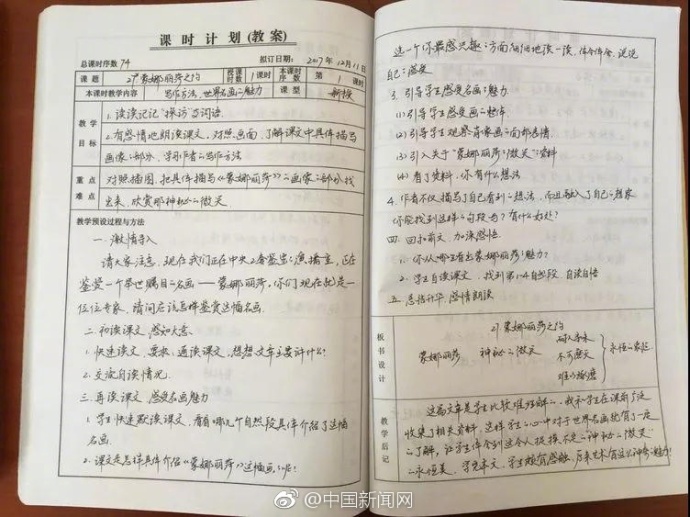 课时计划(教案)
总课时序数 74 拟订日期: 2017年12月11日
课题 27*蒙娜丽莎之约 授课时数 1课时 本课时序数 第1课时
本课时教学内容 写作方法,世界名画的魅力 课型 新授
教学目标
1.读读记记“探访”等词语
2.有感情地朗读课文,对照画面,了解课文中具体描写
画像的部分,学习作者的写作方法
重点难点
对照插图,把具体描写《蒙娜丽莎》的画家的部分找
出来,欣赏那神秘的微笑
教学预设过程与方法
一.激情导入
请大家注意,现在我们正在中央的演播室,正在
鉴赏一个举世瞩目的名画——蒙娜丽莎,你们现在就是一
位位专家,请问应该怎样鉴赏这幅名画
二.初读课文,感知大意
1.快速读文,要求:通读课文,想想文章主要讲什么?
2.交流自读情况.
三.再读课文,感受名画魅力
1.学生快速默读课文,看有哪几个自然段具体介绍了这幅
名画
2.课文是怎样具体介绍《蒙娜丽莎》这幅画的呢?
选一个你最感兴趣的方面细细地读一读,体会体会,说说
自己的感受
3.引导学生感受名画的魅力
(1)引导学生感受画的魅力
(2)引导学生观察肖像画的面部表情
(3)引入关于“蒙娜丽莎的微笑”资料
(4)看了资料,你有什么想法
4.作者不仅描写了自己看到的想法,而且融入了自己的想象
你能找到这样的句段吗?有什么好处?
四.回扣前文,加深感悟
1.你从哪里看出蒙娜丽莎的魅力?
2.学生自读课文,找到第1-4自然段,自读自悟
五.总结升华,感情朗读
板书设计
27.蒙娜丽莎之约
蒙娜丽莎 神秘的微笑
耐人寻味
难以琢磨
永恒的象征
教学后记
这篇文章是学生比较难理解的,我和学生在课前广泛
收集了相关资料,这样学生的心中对于世界名画就有了一定
的了解,让学生体会到这令人捉摸不定的神秘的微笑
的永恒美,学完本文,学生颇有感触,原来艺术有这么神奇的魅力!
@中国新闻网